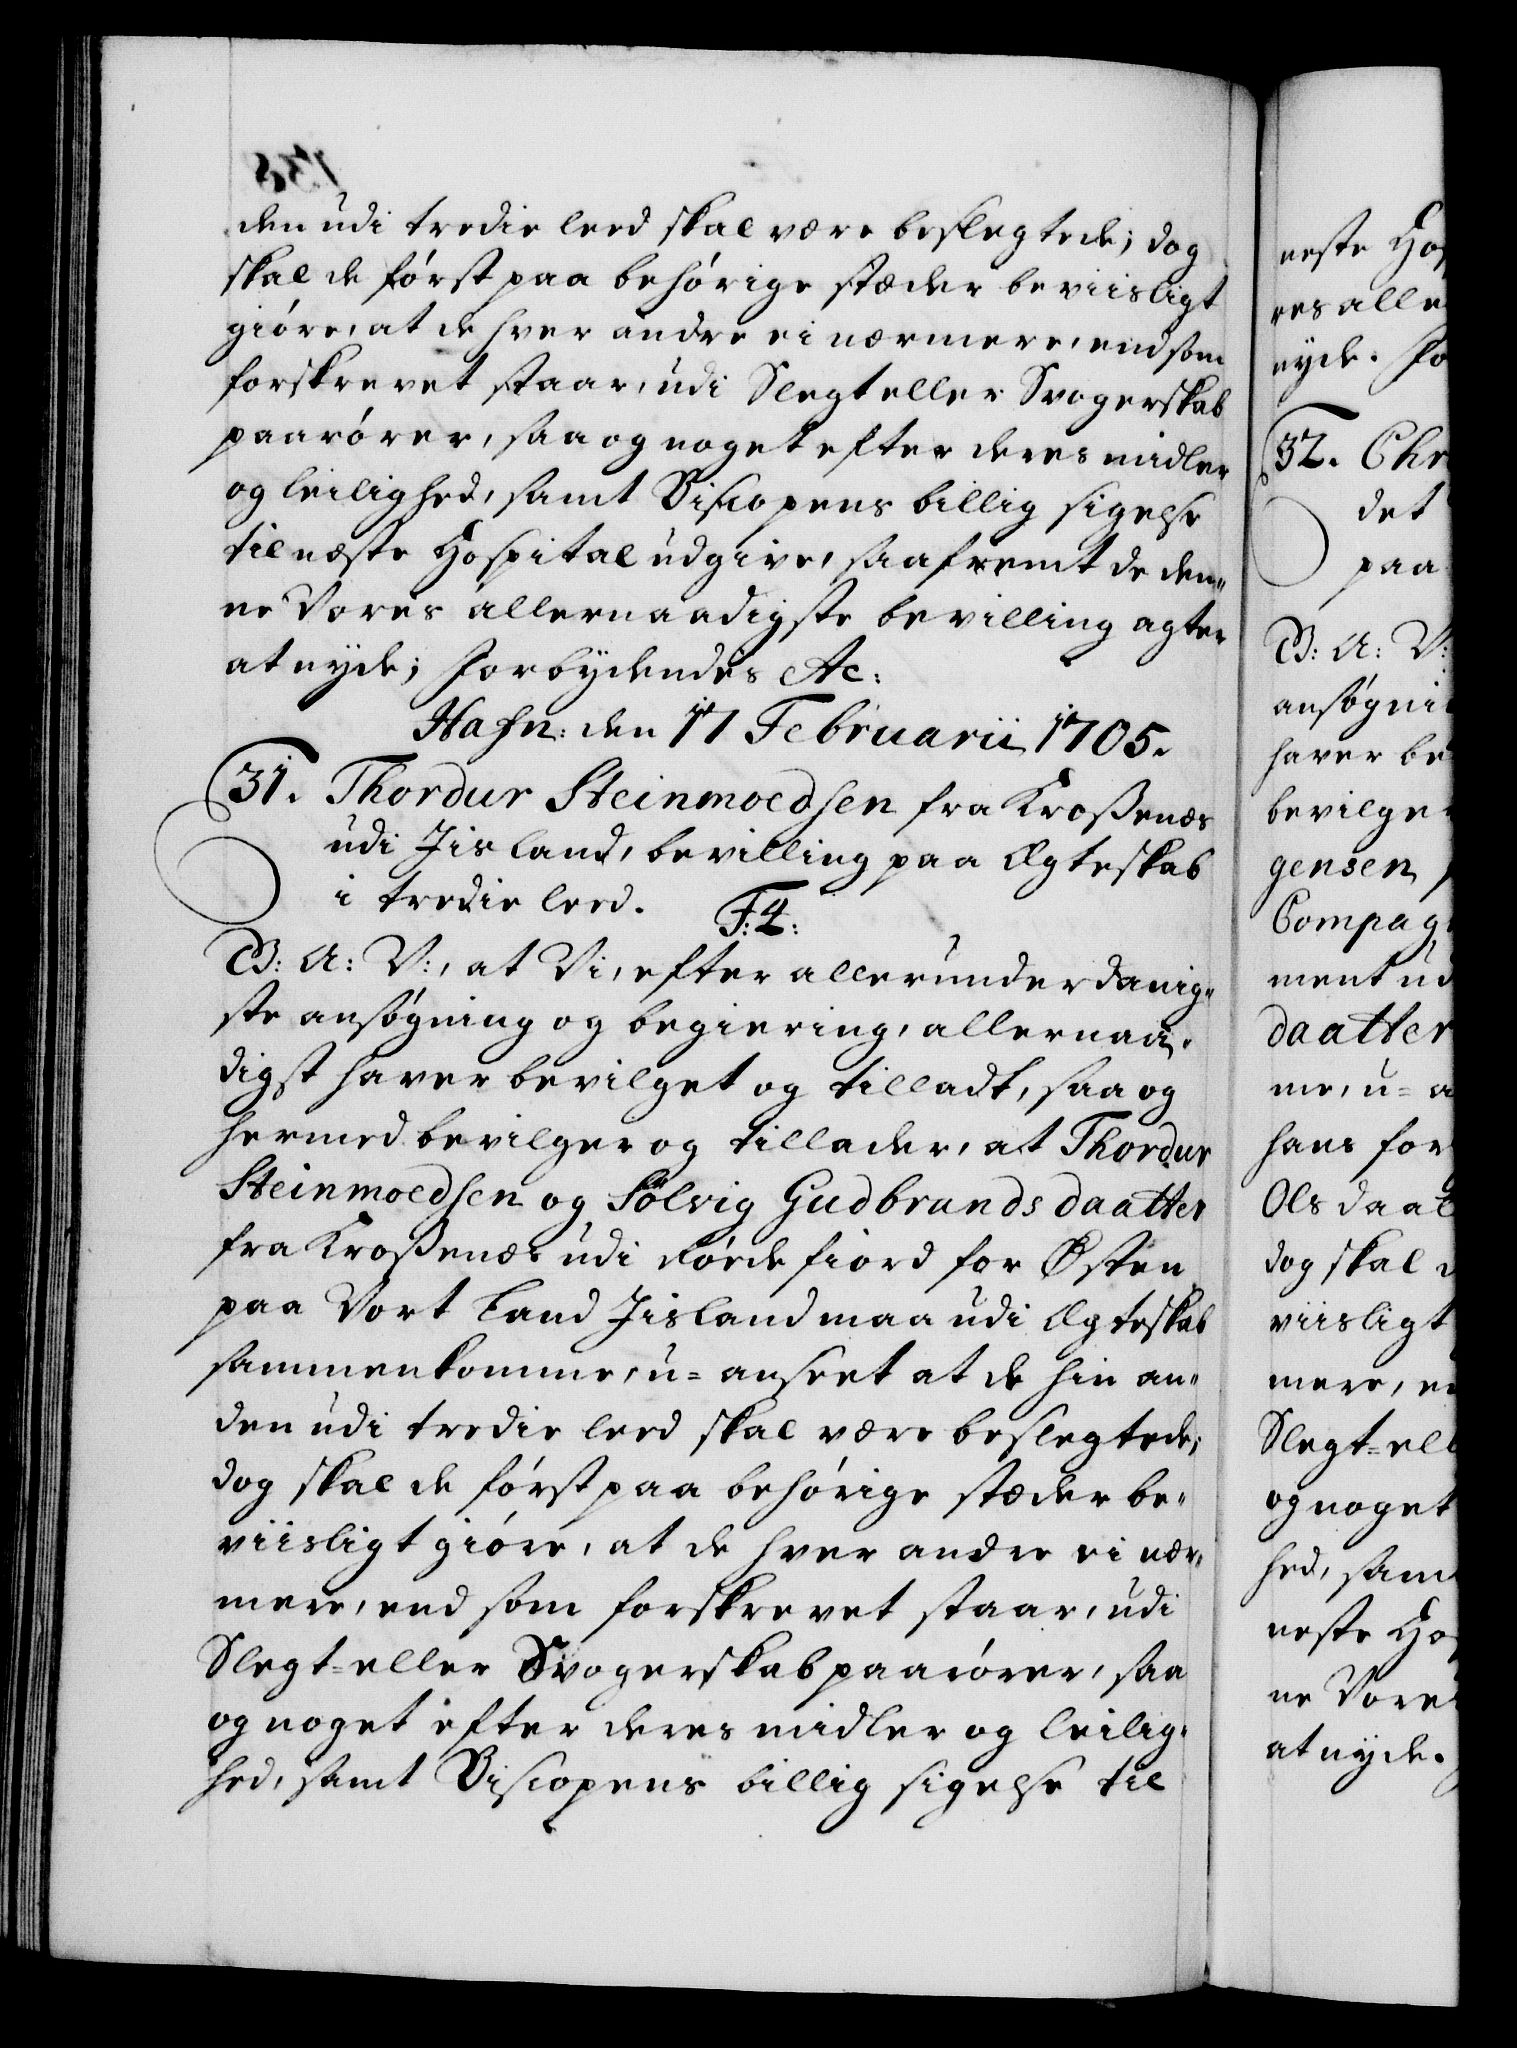 den udi tredie leed skal være beslegtede; dog
skal de först paa behörige stæder beviisligt
giöre, at de hver andre ei nærmere, end som
forskrevet staar, udi Slegt eller Svogerskab
paarörer, saa og noget efter deres midler
og leilighed, samt Biscopens billig sigelse
til næste Hospital udgive, saafremt de den„
ne Vores allernaadigste bevilling agter
at nyde; Forbydendes Ac:
Hafn: den 17 Februarii 1705.
31. Thordur Steinmoedsen fra Kroßenæs
udi Jisland, bevilling paa Ægteskab
i tredie leed.
F: 4:
C3: A: V:, at Vi, efter allerunderdanig„
ste ansögning og begiering, allernaa„
digst haver bevilget og tilladt, saa og
hermed bevilger og tillader, at Thordur
Steinmoedsen og Sölvig Gudbrands daatter
fra Kroßenæs udi Rördefiord for Østen
paa Vort Land Jisland maa udi Ægteskab
sammenkomme, u=anseet at de hin an„
den udi tredie leed skal være beslegtede;
dog skal de först paa behörige stæder be„
viisligt giöre, at de hver andre ei nær„
mere, end som forskrevet staar, udi
Slegt=eller Svogerskab paarörer, saa
og noget efter deres midler og leilig„
hed, samt Biscopens billig sigelse til
neste Hos
res alle
nyde. Fo
32. Chr
det
paa
C3: A: V:
ansögni
haver be
bevilge
gensen
Compag
ment ud
daatter
me, u= a
hans for
Ols daat
dog skal d
viisligt
mere, en
Slegt=ell
og noget
hed, sam
neste Ho
ne Vore
at nyde.